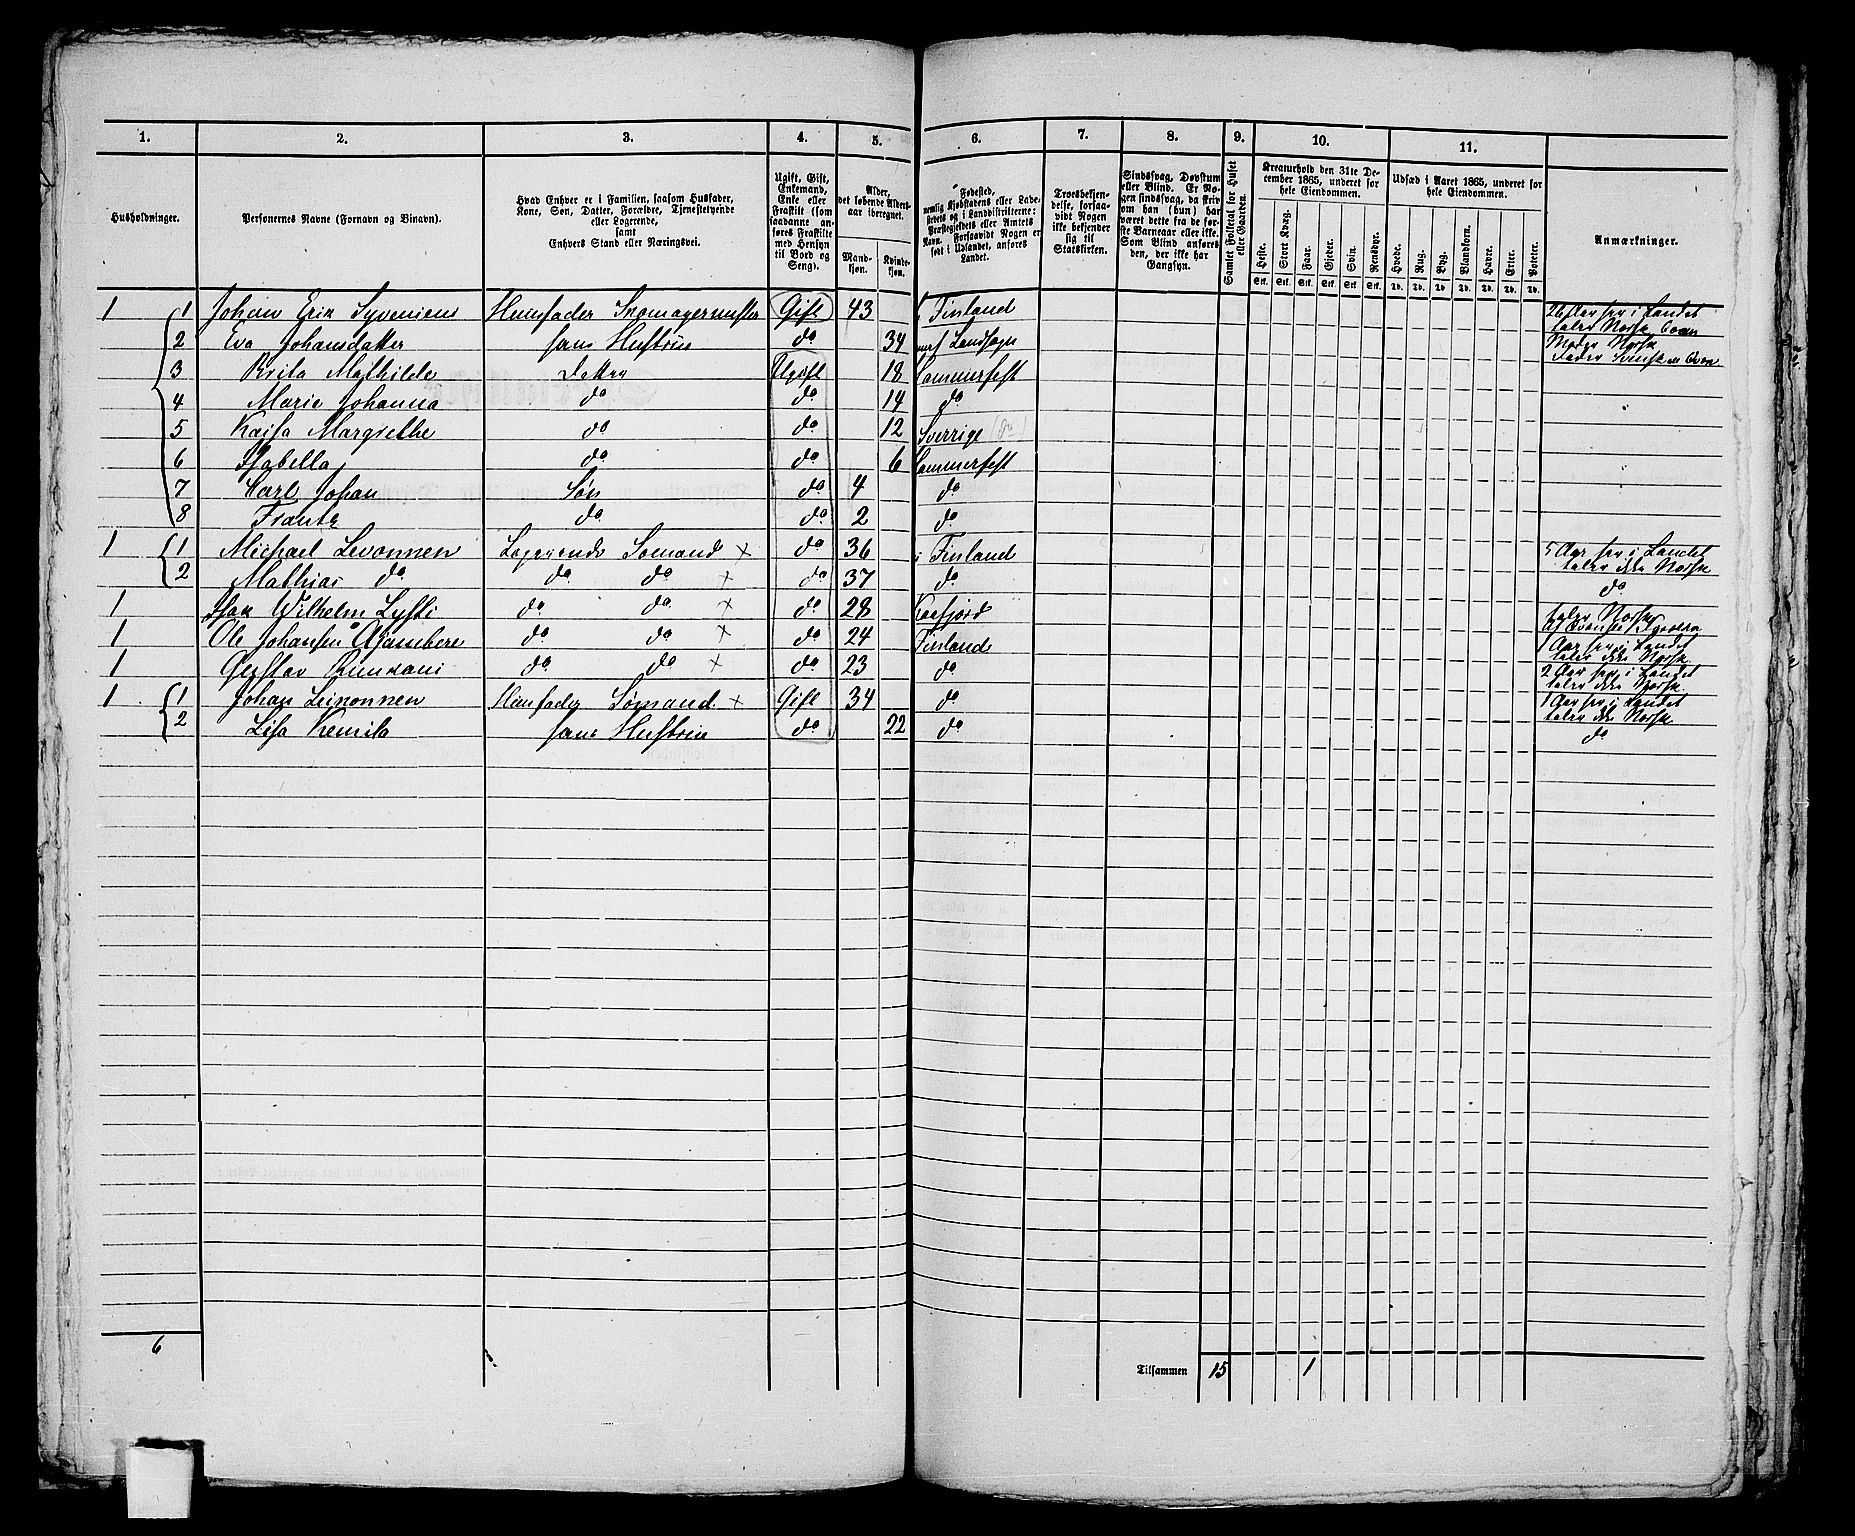 1. 2. 3. 4. 5. 6. 7. 8. 9. 10. 11.
Husholdninger.
Personernes Navne (Fornavn og Binavn).
Hvad Enhver er i Familien, saasom Husfader,
Kone, Søn, Datter, Forældre, Tjenestetyende
eller Logerende,
samt
Enhvers Stand eller Næringsvei.
Ugift, Gift,
Enkemand,
Enke eller
Fraskilt (som
saadanne an-
føres Fraskilte
med Hensyn
til Bord og
Seng).
Alder,
det løbende Alders-
aar iberegnet.
Mand-
kjøn.
Kvinde-
kjøn.
Fødested,
nemlig Kjøbstadens eller Lade-
stedets og i Landdistrikterne:
Præstegjeldets eller Amtets
Navn. Forsaavidt Nogen er
født i Udlandet, anføres
Landet.
Troesbekjen-
delse, forsaa-
vidt Nogen
ikke bekjender
sig til
Statskirken.
Sindssvag, Døvstum
eller Blind. Er No-
gen sindssvag, da skriv
om han (hun) har
været dette fra de før-
ste Barneaar eller ikke.
Som Blind anføres
den, der ikke har
Gangsyn.
Samlet Folketal for Huset
eller Gaarden.
Kreaturhold den 31te De-
cember 1865, underet for
hele Eiendommen.
Heste. Stort Kvæg. Faar. Gjeder. Svin. Rensdyr.
Stk. Stk. Stk. Stk. Stk. Stk.
Udsæd i Aaret 1865, underet for
hele Eiendommen.
Hvede. Rug. Byg. Blandkorn. Havre. Erter. Poteter.
Td. Td. Td. Td. Td. Td. Td.
Anmærkninger.
1 1 Johan Erik Syveniens Huusfader Skomagermester Gift 43 Finland 26 Aar her i Landet
taler Norsk
2 Eva Johansdatter hans Hustrue do 34 Moder Norsk
Fader Svensk
3 Brita Mathilde Datter Ugift 18 Hammerfest
4 Marie Johanna do do 14 do
5 Kaisa Margrethe do do 12 Sverrige
6 Isabella do do 6 Hammerfest
7 Karl Johan Søn do 4 do
8 Frantz do do 2 do
1 1 Michael Levonnen Logerende Sømand × do 36 Finland 5 Aar her i Landet
taler ikke Norsk
2 Mathias do do do × do 37 do do
1 Isak Wilhelm do do × do 28 Kaafjord taler Norsk
1 Ole Johansen do do × do 24 Finland 1 Aar her i Landet
taler ikke Norsk
1 Gustav do do × do 23 do 2 Aar her i Landet
taler ikke Norsk
1 1 Johan Leinonnen Huusfader Sømand × Gift 34 do 1 Aar her i Landet
taler ikke Norsk
2 Lisa Kemila hans Hustrue do 22 do do
6
Tilsammen 15 1